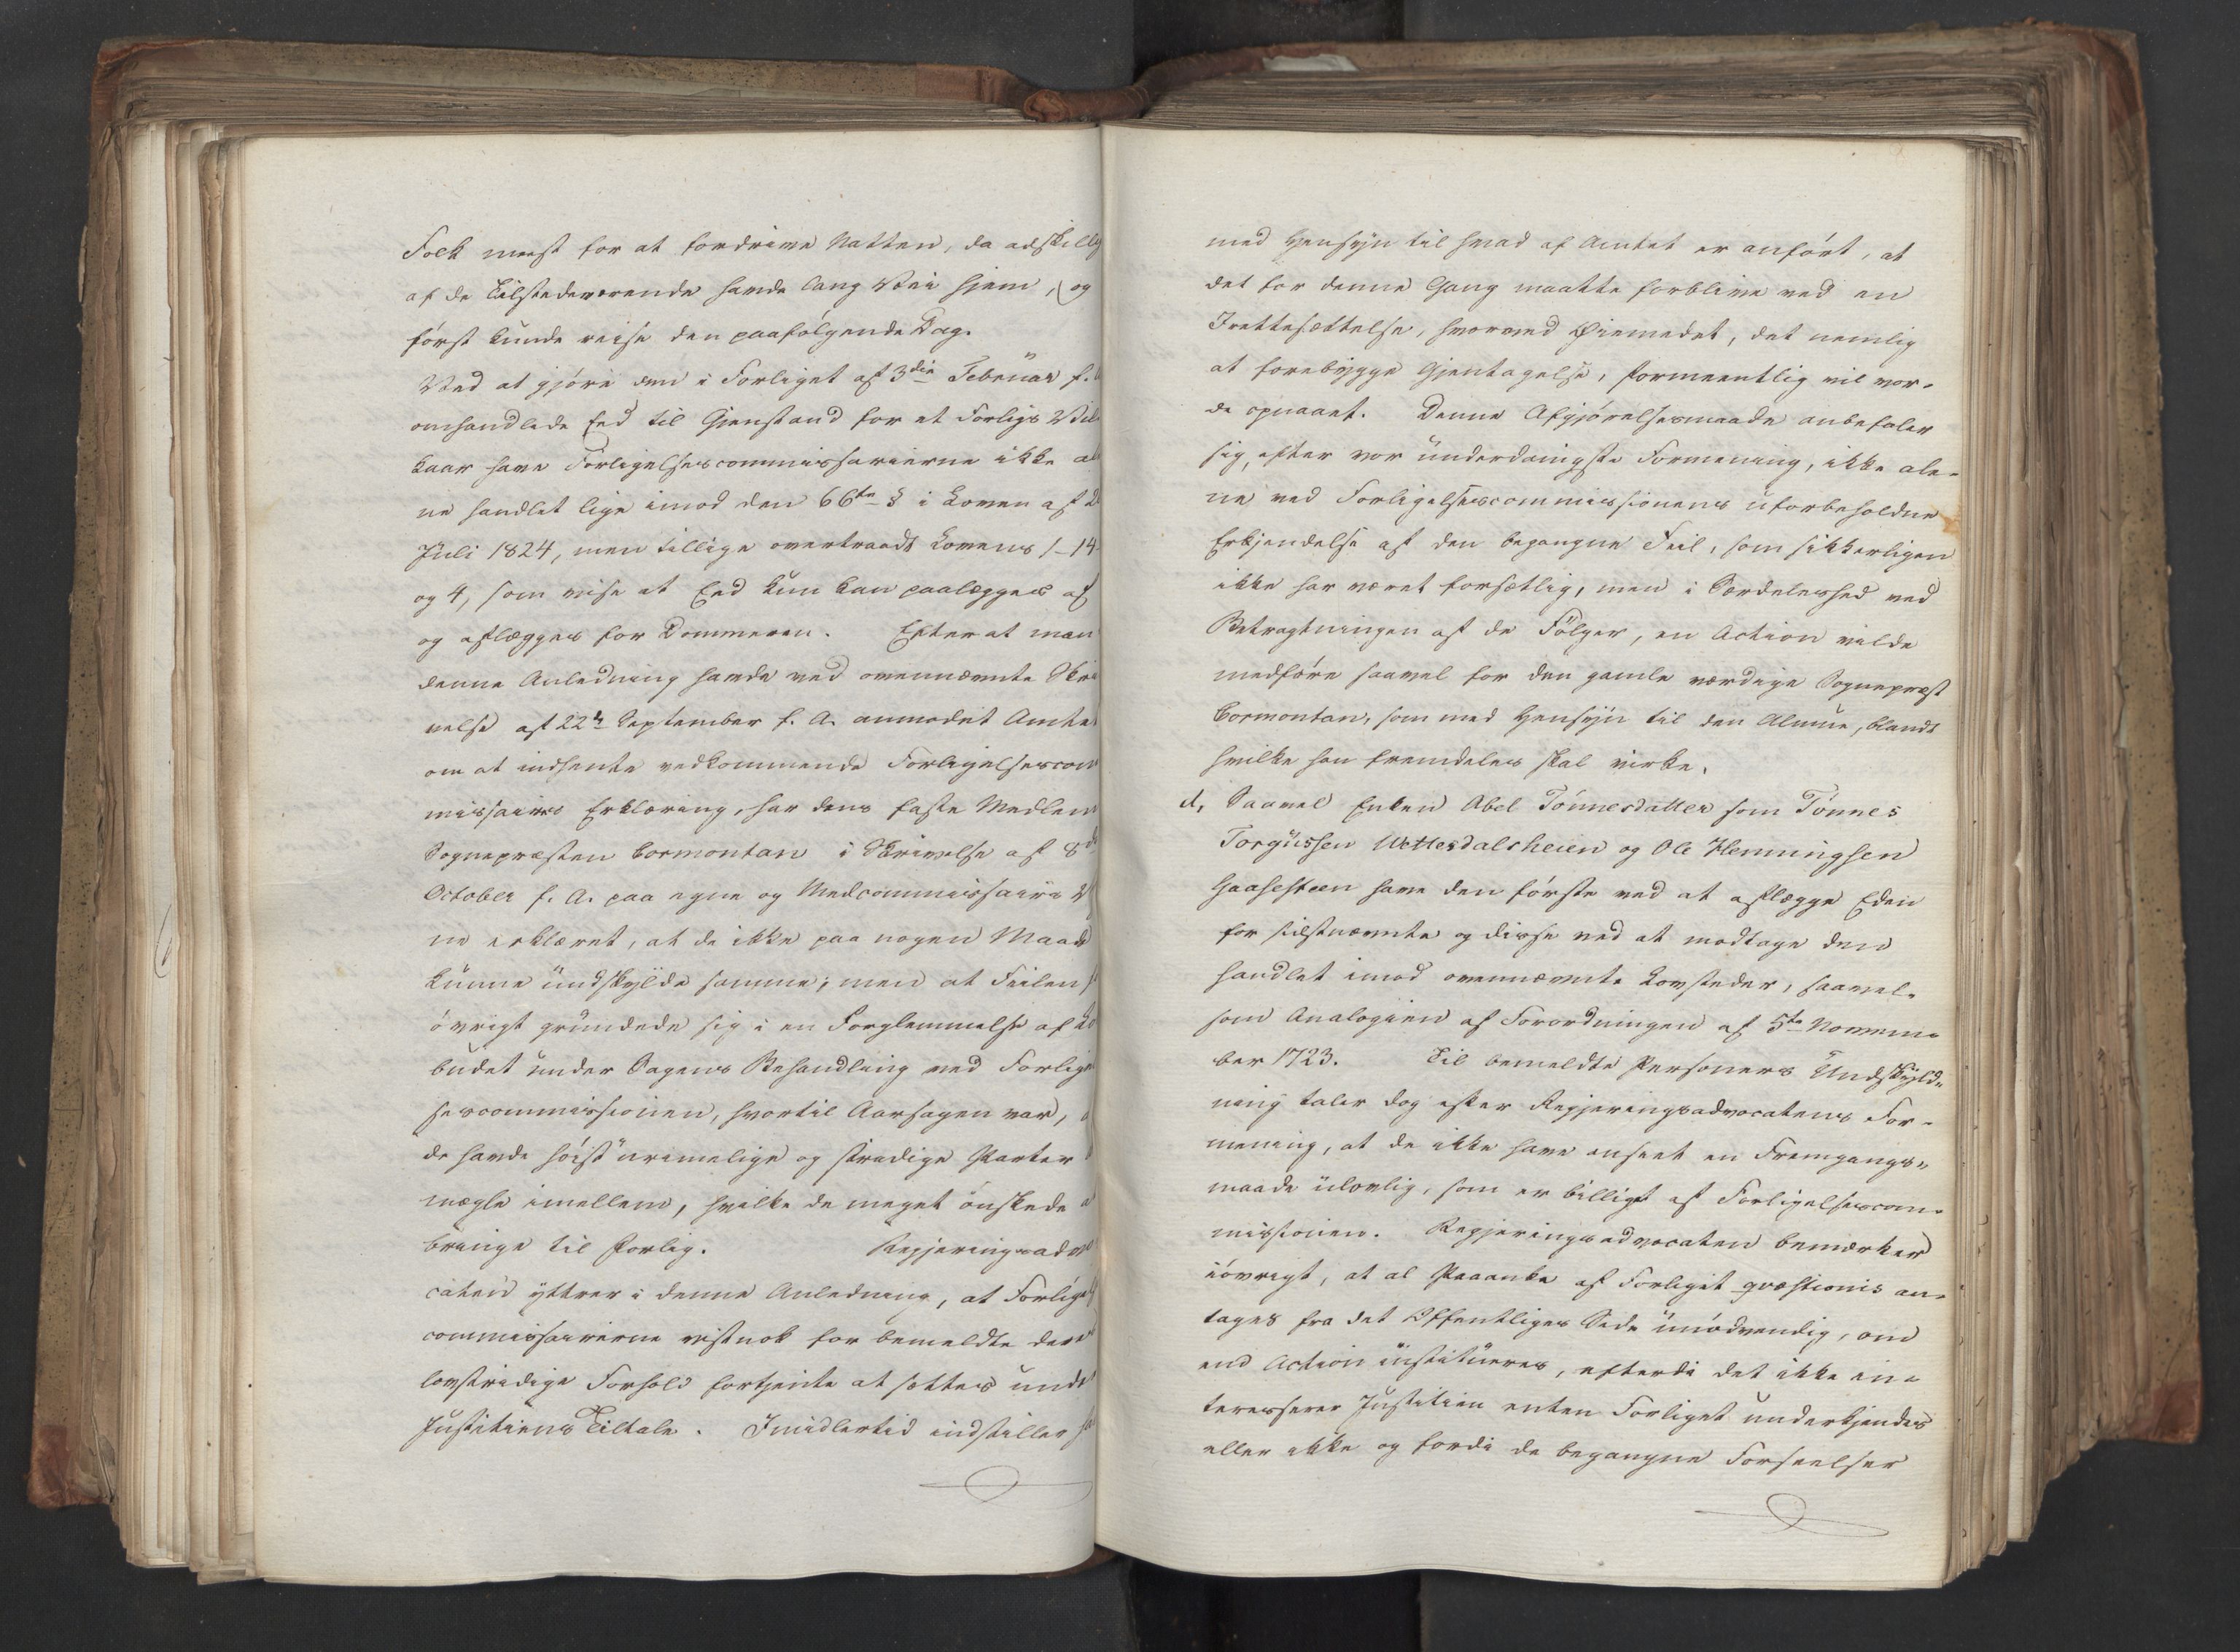 Folk meest for at fordrive Natten, da adskillig
af de Tilstedeværende havde lang Vei hjem, og
først kunde reise den paafølgende Dag.
Ved at gjøre den i Forliget af 3die Februar f. A
omhandlede Eed til Gjenstand for et Forligs Vil
kaar have Forligelsescommissarierne ikke ale
ne handlet lige imod den 66te § i Loven af 20
Juli 1824, men tillige overtraadt Lovens 1-14-
og 4, som vise at Eed kun kan paalægges af
og aflægges for Dommeren. Efterat man
denne Anledning havde ved ovennævnte Skri
velse af 22de September f. A. anmodet Amtet
om at indhente vedkommende Forligelsescom
missairs Erklæring, har dens faste Medlem
Sognepræsten Cormontan i Skrivelse af 8de
October f. A. paa egne og Medcommissairs V
ne erklæret, at de ikke paa nogen Maade
kunne undskylde samme; men at Feilen f
øvrigt grundede sig i en Forglemmelse af Lo
budet under Sagens Behandling ved Forligel
sescommissionen, hvortil Aarsagen var, a
de havde høist urimelige og stridige Parter
mægle imellem, hvilke de meget ønskede a
bringe til Forlig. Regjeringsadvo
caten yttrer i denne Anledning, at Forligels
commissairerne vistnok for bemeldte deres
lovstridige Forhold fortjente at sættes under
Justitiens Tiltale. Imidlertid indstiller ha
med Hensyn til hvad af Amtet er anført, at
det for denne Gang maatte forblive ved en
Irettesættelse, hvorved Øiemedet, det nemlig
at forebygge Gjentagelse, formeentlig vil vor-
de opnaaet. Denne Afgjørelsesmaade anbefaler
sig, efter vor underdanigste Formening, ikke ale-
ne ved Forligelsescommissionens uforbeholdne
Erkjendelse af den begangne Feil, som sikkerligen
ikke har været forsætlig, men i Særdeleshed ved
Betragtningen af de Følger, en Action vilde
medføre saavel for den gamle værdige Sognepræst
Cormontan, som med Hensyn til den Almue, blandt
hvilke han fremdeles skal virke.
d, Saavel Enken Abel Tønnesdatter som Tønnes
Torgiussen Wettesdalsheien og Ole Henningsen
Gaasesteen have den første ved at aflægge Eden
for sidstnævnte og disse ved at modtage den
handlet imod ovennævnte Lovsteder, saavel-
som Analogien af Forordningen af 5te Novem-
ber 1723. Til bemeldte Personers Undskyld-
ning taler dog efter Regjeringsadvocatens For-
mening, at de ikke have anseet en Fremgangs-
maade ulovlig, som er billiget af Forligelsescom-
missionen. Regjeringsadvocaten bemærker
iøvrigt, at al Paaanke af Forliget qvæstionis an-
tages fra det Offentliges Side unødvendig, om
end Action institueres, efterdi det ikke in-
teresserer Justitien enten Forliget underkjendes
eller ikke og fordi de begangne Forseelser